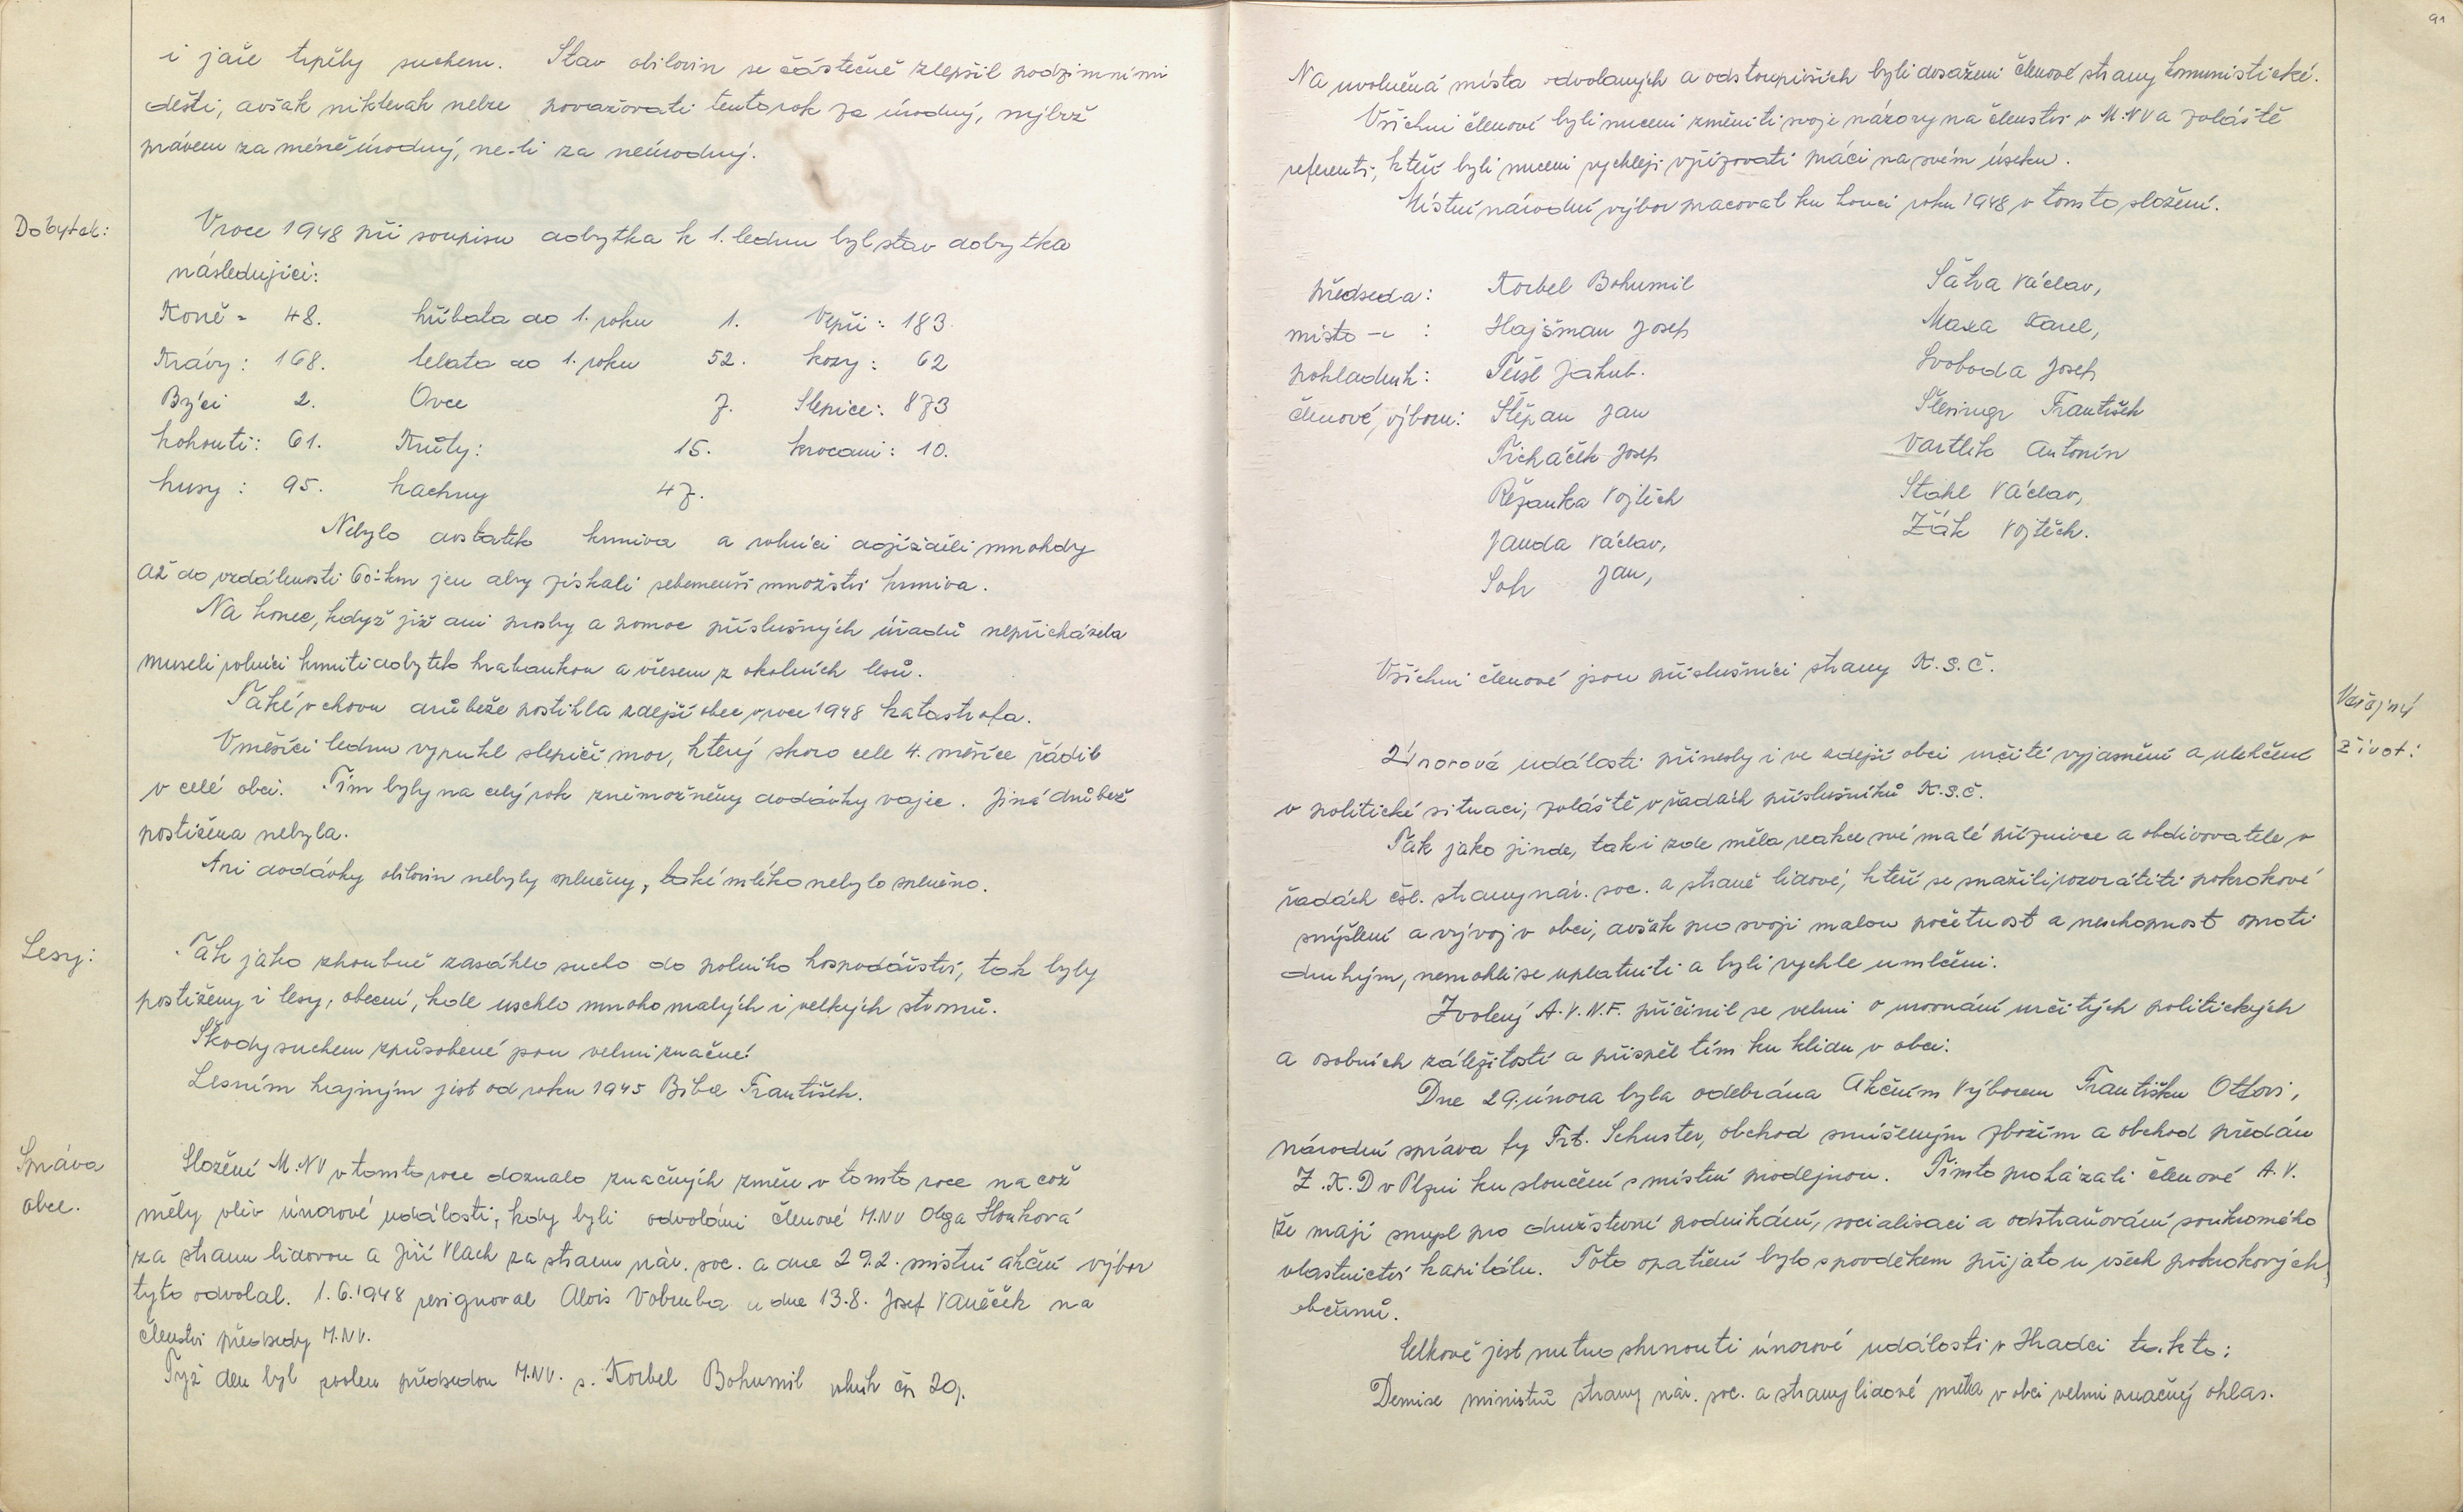 i jaře trpěly suchem. Stav obilovin se částečně zlepšil podzimními
dešti, avšak nikterak nelze považovati tento rok za úrodný, nýbrž
právem za méně úrodný, ne-li za neúrodný.
Dobytek:
V roce 1948 při soupisu dobytka k 1. lednu byl stav dobytka
následující:
Koně = 48. hříbata do 1. roku 1. Vepři: 183.
Krávy: 168. telata do 1. roku 52. kozy: 62
Býci 2. Ovce 7. Slepice: 873
kohouti: 61. Krůty: 15. krocani: 10.
husy: 95. kachny 47.
Nebylo dostatek krmiva a rolníci dojížděli mnohdy
až do vzdálenosti 60-km jen aby získali sebemenší množství krmiva.
Na konec, když již ani prosby a pomoc příslušných úřadů nepřicházela
museli rolníci krmiti dobytek hrabankou a vřesem z okolních lesů.
Také v chovu drůbeže postihla zdejší obec v roce 1948 katastrofa.
V měsíci lednu vypukl slepičí mor, který skoro celé 4. měsíce řádil
v celé obci. Tím byly na celý rok znemožněny dodávky vajec. Jiná drůbež
postižena nebyla.
Ani dodávky obilovin nebyly splněny, také mléko nebylo splněno.
Lesy:
Tak jako zhoubně zasáhlo sucho do polního hospodářství, tak byly
postiženy i lesy, obecní, kde uschlo mnoho malých i velkých stromů.
Škody suchem způsobené jsou velmi značné.
Lesním hajným jest od roku 1945 Bíba František.
Správa
obce.
Složení M.NV v tomto roce doznalo značných změn v tomto roce na což
měly vliv únorové události, kdy byli odvoláni členové M.NV Olga Houková
za stranu lidovou a Jiří Vlach za stranu nár. soc. a dne 29.2. místní akční výbor
tyto odvolal. 1.6.1948 resignoval Alois Vobruba a dne 13.8. Josef Vaněček na
členství předsedy M.NV.
Týž den byl zvolen předsedou M.NV. s. Korbel Bohumil rolník čp 29.
91
Na uvolněná místa odvolaných a odstoupivších byli dosazeni členové strany komunistické.
Všichni členové byli nuceni změniti svoje názory na členství v M.NV a zvláště
referenti, kteří byli nuceni rychleji vyřizovati práci na svém úseku.
Místní národní výbor pracoval ku konci roku 1948 v tomto složení.
předseda: Korbel Bohumil Sátra Václav,
místo -"- : Hajšman Josef Maxa Karel,
pokladník: Teisl Jakub. Svoboda Josef
členové, výboru: Štěpan Jan Šlesingr František
Ticháček Josef Vartlík Antonín
Řežanka Vojtěch Stahl Václav,
Janda Václav, Žák Vojtěch.
Soh Jan,
Všichni členové jsou příslušníci strany K.S.Č.
Veřejný
život:
Únorová události přinesly i ve zdejší obci určité vyjasnění a ulehčení
v politické situaci, zvláště v řadách příslušníků K.S.Č.
Tak jako jinde, tak i zde měla reakce své malé příznivce a obdivovatele v
řadách čsl. strany nár. soc. a straně lidové, kteří se snažili rozvrátiti pokrokové
smýšlení a vývoj v obci, avšak pro svoji malou početnost a neschopnost oproti
druhým, nemohli se uplatniti a byli rychle umlčeni.
Zvolený A.V.N.F. přičinil se velmi o urovnání určitých politických
a osobních záležitostí a přispěl tím ku klidu v obci.
Dne 29. února byla odebrána Akčním Výborem Františku Ottovi,
národní správa fy Frt. Schuster, obchod smíšeným zbožím a obchod předán
Z.K.D v Plzni ku sloučení s místní prodejnou. Tímto prokázali členové A.V.
že mají smysl pro družstevní podnikání, socialisaci a odstraňování soukromého
vlastnictví kapitálu. Toto opatření bylo s povděkem přijato u všech pokrokových
občanů.
Celkově jest nutno shrnouti únorové události v Hradci takto:
Demise ministrů strany nár. soc. a strany lidové měla v obci velmi značný ohlas.